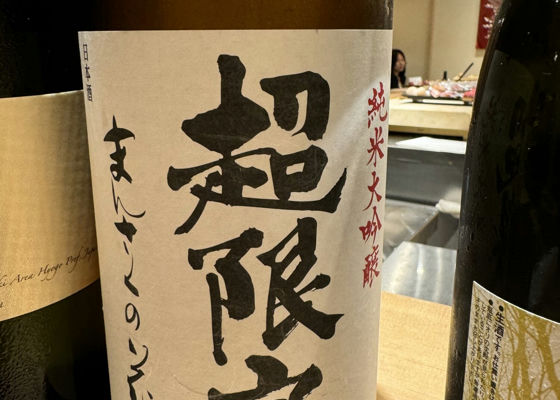 日本酒
純米大吟醸
超限定
まんさくの花
Area Hyogo Pref. Japan
●生酒です。